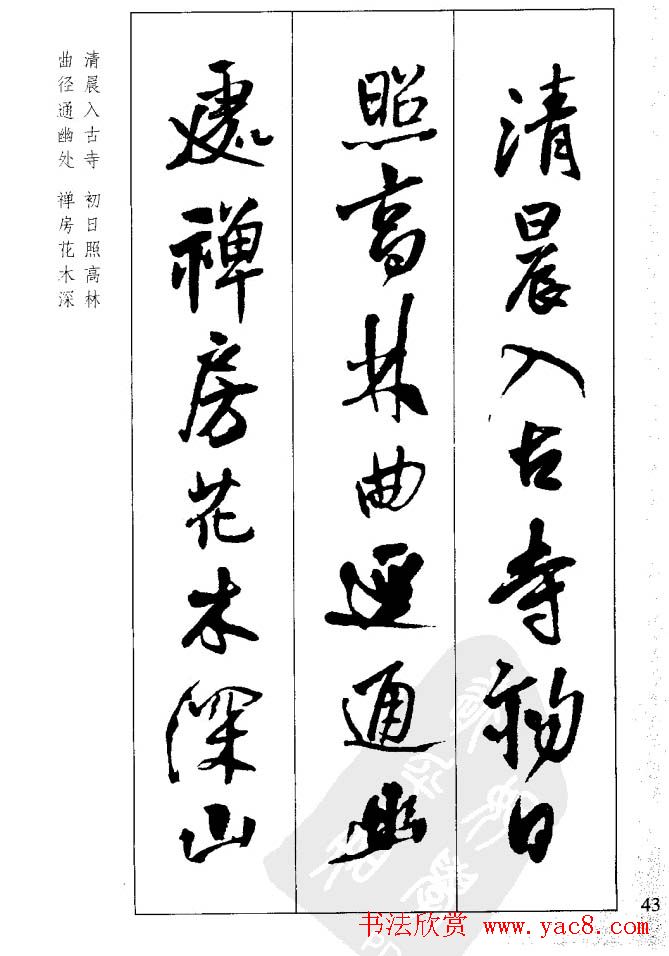 清晨入古寺初日
照高林曲逕通幽
處禪房花木深山
清晨入古寺 初日照高林
曲径通幽处 禅房花木深
43
书法欣赏 www.yac8.com